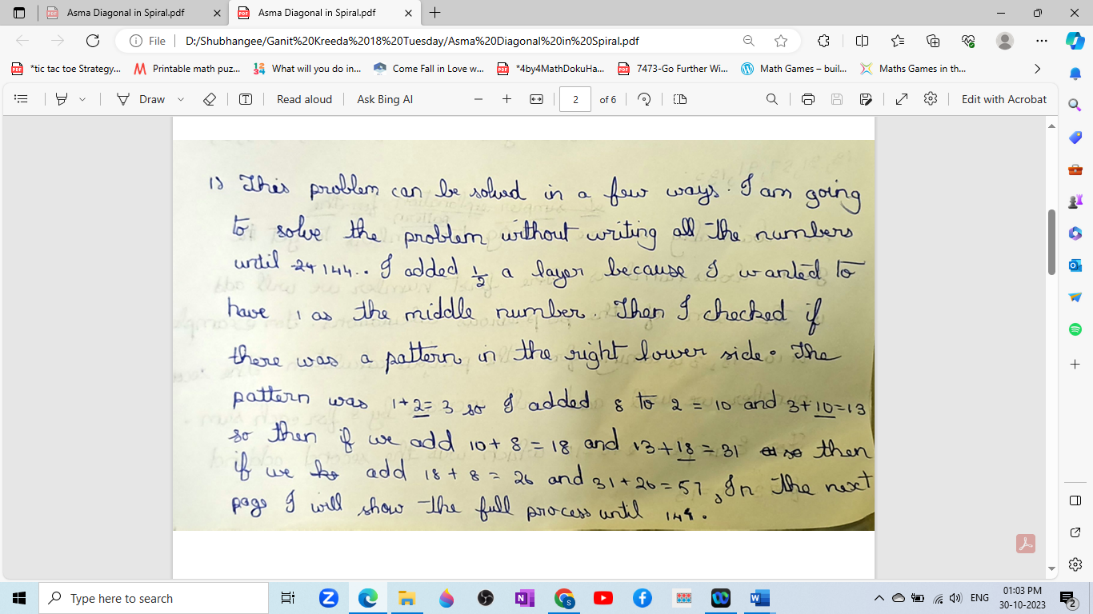 Asma Diagonal in Spiral.pdf
Asma Diagonal in Spiral.pdf
File D:/Shubhangee/Ganit%20Kreeda%2018%20Tuesday/Asma%20Diagonal%20in%20Spiral.pdf
*tic tac toe Strategy... Printable math puz... What will you do in... Come Fall in Love w... *4by4MathDokuHa... 7473-Go Further Wi... Math Games – buil... Maths Games in th...
Draw Read aloud Ask Bing AI 2 of 6 Edit with Acrobat
1) This problem can be solved in a few ways. I am going
to solve the problem without writing all the numbers
until 144.. I added 1/2 a layer because I wanted to
have 1 as the middle number. Then I checked if
there was a pattern in the right lower side. The
pattern was 1+2=3 so I added 8 to 2 = 10 and 3+10=13
so then if we add 10+8=18 and 13+18=31 so then
if we add 18+8=26 and 31+26=57, In the next
page I will show the full process until
Type here to search
ENG
01:03 PM
30-10-2023
2